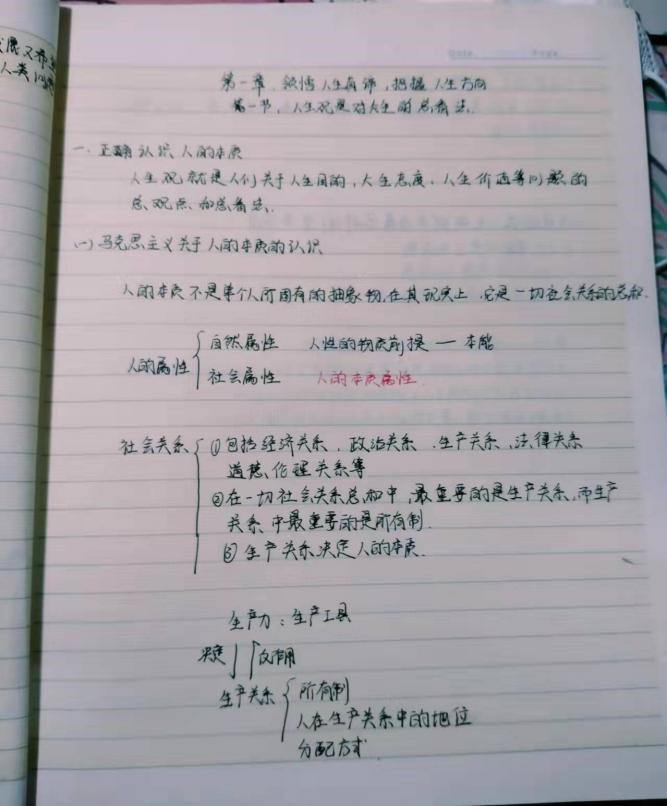 第一章、领悟人生真谛,把握人生方向
第一节,人生观是对人生的总看法.
一.正确认识人的本质
人生观就是人们关于人生目的,人生态度.人生价值等问题的
总观点和总看法.
(一)马克思主义关于人的本质的认识
人的本质不是单个人所固有的抽象物,在其现实上,它是一切社会关系的总和.
人的属性 自然属性 人性的物质前提 — 本能
社会属性 人的本质属性.
社会关系 ①包括经济关系,政治关系.生产关系,法律关系
道德、伦理关系等
②在一切社会关系总和中,最重要的是生产关系,而生产
关系中最重要的是所有制.
③生产关系决定人的本质.
生产力:生产工具
决定 反作用
生产关系 所有制
人在生产关系中的地位
分配方式